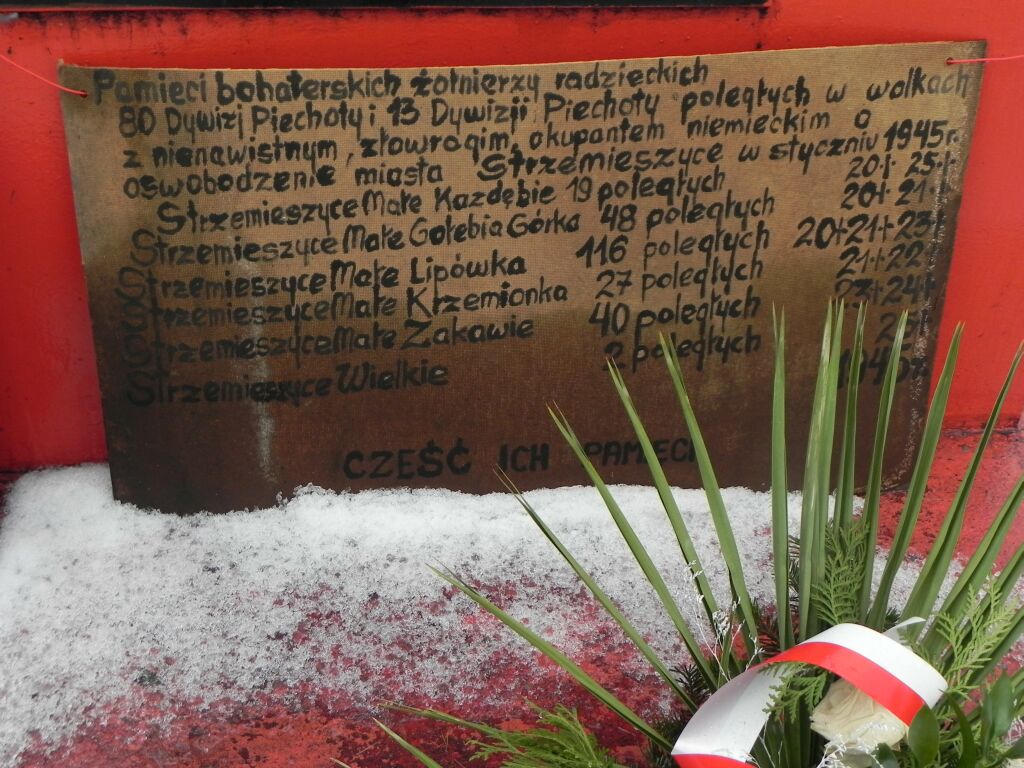 Pamięci bohaterskich żołnierzy radzieckich
80 Dywizj Piechoty i 13 Dywizji Piechoty poległych w walkach
z nienawistnym, złowrogim, okupantem niemieckim o
oswobodzenie miasta Strzemieszyce w styczniu 1945r.
Strzemieszyce Małe Kazdębie 19 poległych 20+ 25+
Strzemieszyce Małe Gołebia Górka 48 poległych 20+ 21+
Strzemieszyce Małe Lipówka 116 poległych 20+21+23+
Strzemieszyce Małe Krzemionka 27 poległych 21+ 22+
Strzemieszyce Małe Zakawie 40 poległych 23+ 24+
Strzemieszyce Wielkie 2 poległych
1945r.
CZEŚĆ ICH PAMIĘCI